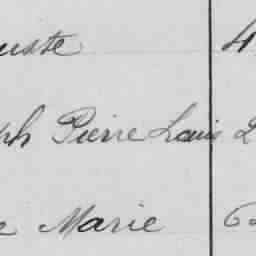 uste 4
ph Pierre Louis 2
e Marie 62